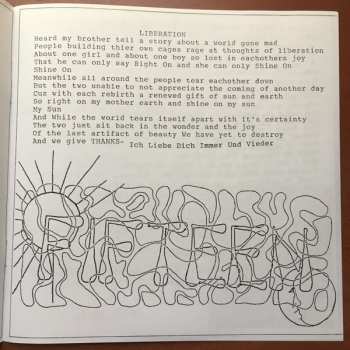 LIBERATION
Heard my brother tell a story about a world gone mad
People building thier own cages rage at thoughts of liberation
About one girl and about one boy so lost in eachothers joy
That he can only say Right On and she can only Shine On
Shine On
Meanwhile all around the people tear eachother down
But the two unable to not appreciate the coming of another day
Cuz with each rebirth a renewed gift of sun and earth
So right on my mother earth and shine on my sun
My Sun
And While the world tears itself apart with it's certainty
The two just sit back in the wonder and the joy
Of the last artifact of beauty We have yet to destroy
And we give THANKS- Ich Liebe Dich Immer Und Vieder